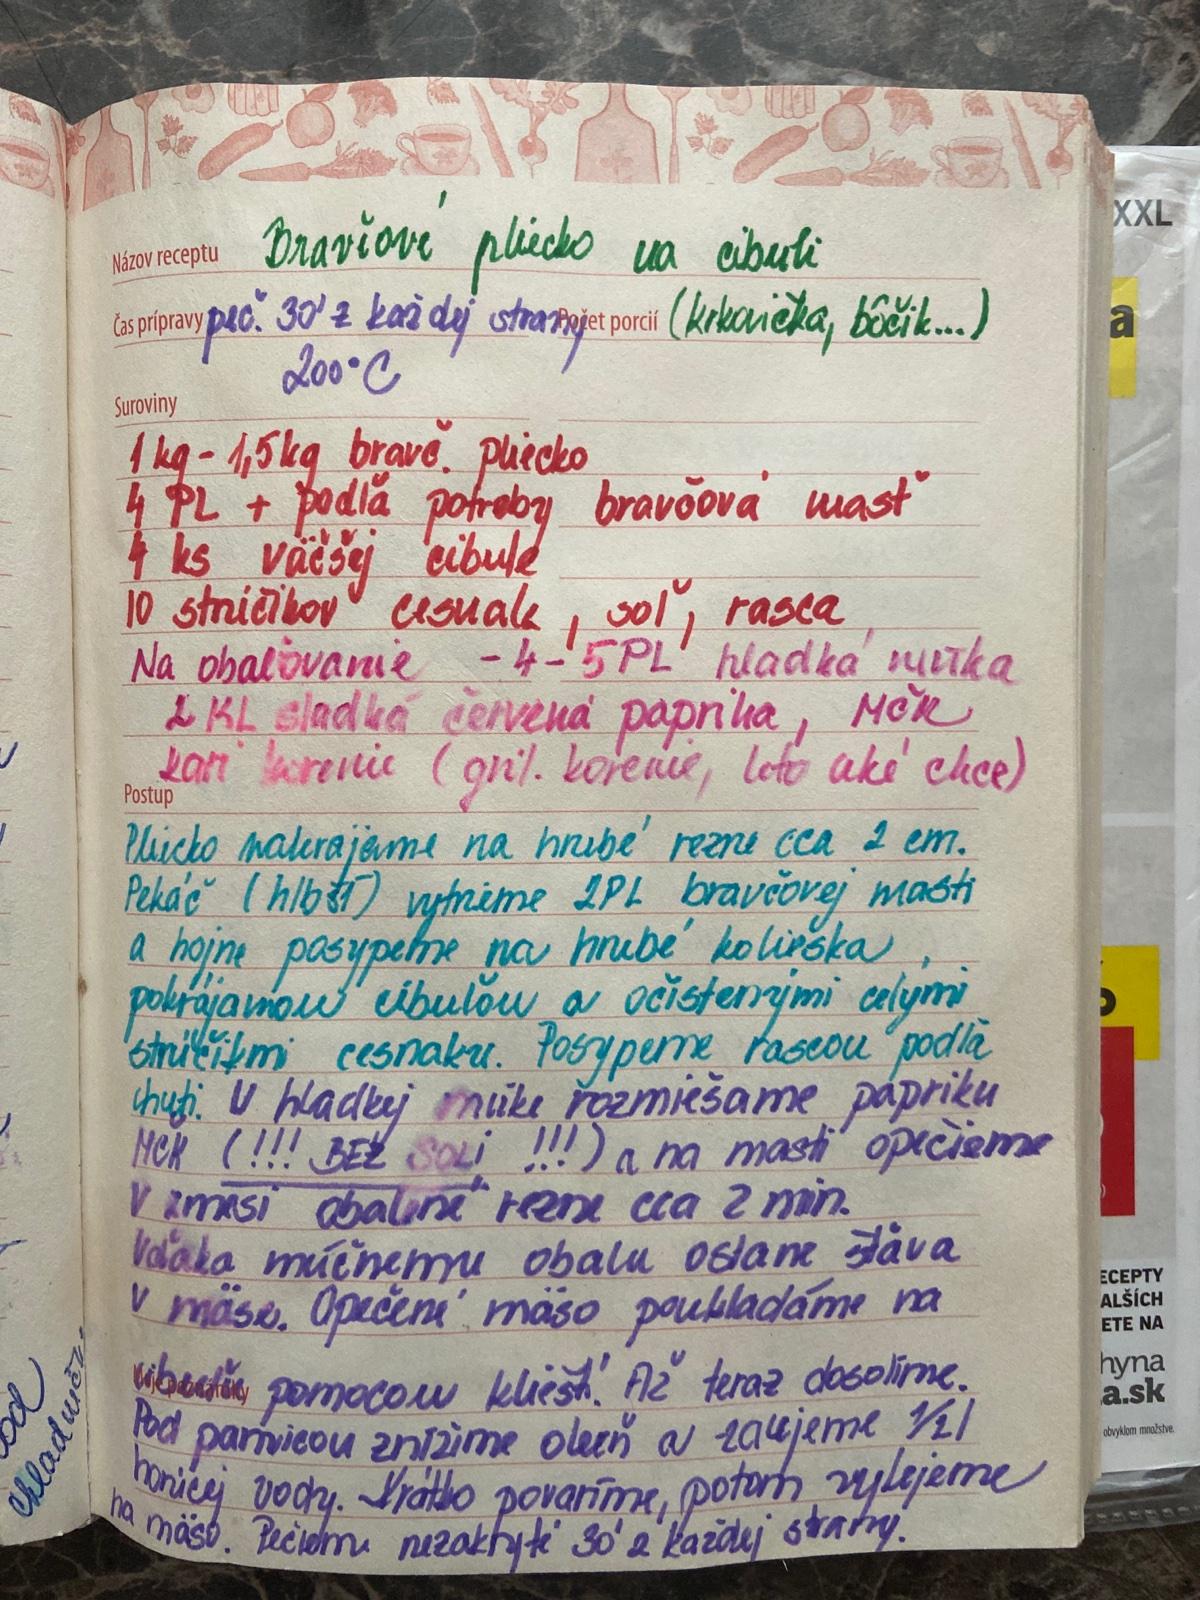 Názov receptu Bravčové pliecko na cibuli
Čas prípravy peč. 30' z každej strany Počet porcií (krkovička, bôčik...)
200°C
Suroviny
1 kg - 1,5kg bravč. pliecko
4 PL + podľa potreby bravčová masť
4 ks väčšej cibule
10 strúčikov cesnak, soľ, rasca
Na obaľovanie - 4 - 5 PL hladká múka
2 KL sladká červená paprika, MČK
kari korenie (gril. korenie, kto aké chce)
Postup
Pliecko nakrájame na hrubé rezne cca 2 cm.
Pekáč (hlbší) vytrieme 2PL bravčovej masti
a hojne posypeme na hrubé kolieska,
pokrájanou cibuľou a očistenými celými
strúčikmi cesnaku. Posypeme rascou podľa
chuti. V hladkej múke rozmiešame papriku
MČK (!!! BEZ SOLI !!!) a na masti opečieme
v zmesi obalené rezne cca 2 min.
Vďaka múčnemu obalu ostane šťava
v mäse. Opečené mäso poukladáme na
pomocou klieští. Až teraz dosolíme.
Pod panvicou znížime oheň a zalejeme 1/2 l
horúcej vody. Krátko povaríme, potom vylejeme
na mäso. Pečieme nezakryté 30' z každej strany.
chladničk
XXL
a
ECEPTY
ALŠÍCH
ETE NA
hyna
a.sk
obvyklom množstve.